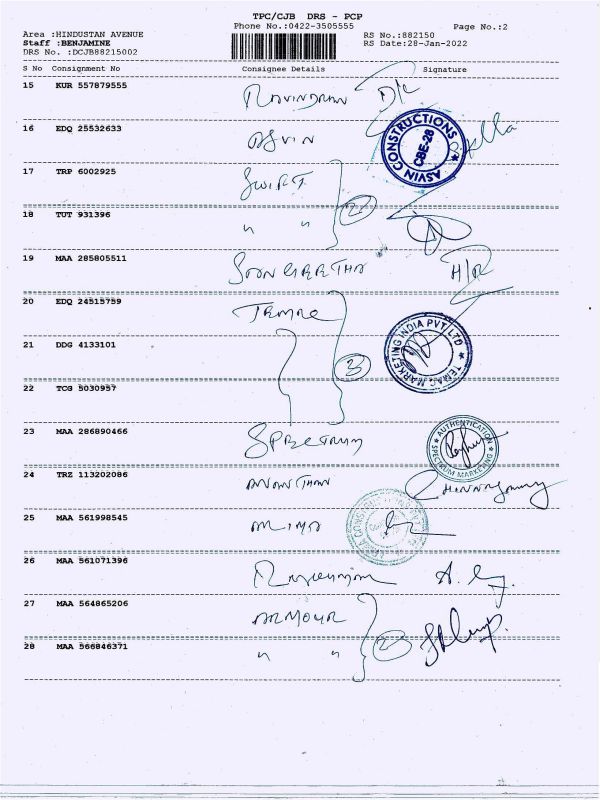 TPC/CJB DRS - PCP
Phone No.:0422-3505555
Page No.:2
Area :HINDUSTAN AVENUE
RS No.:882150
Staff :BENJAMINE
RS Date:28-Jan-2022
DRS No. :DCJB88215002
S No Consignment No Consignee Details Signature
15 KUR 557879555 RAVINDRAN D/R
16 EDQ 25532633 ASVIN Stella
ASVIN CONSTRUCTIONS CBE-28
17 TRP 6002925 SWIFT
2
18 TUT 931396 " "
19 MAA 285805511 SANGEETHA H/R
20 EDQ 24515759
MARKETING INDIA PVT LTD
21 DDG 4133101
3
22 TCG 5030957
23 MAA 286890466 SPECTRUM
AUTHENTICATION SPECTRUM MARKETING
24 TRZ 113202086 ANANTHAN
25 MAA 561998545
26 MAA 561071396
27 MAA 564865206 ARMOUR
2
28 MAA 566846371 " "